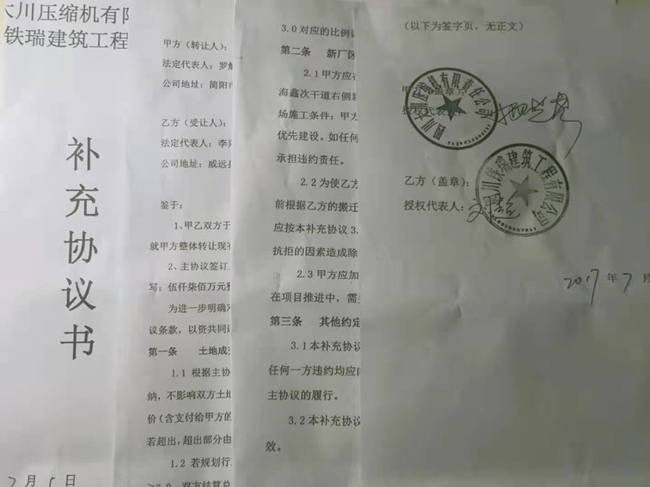 川压缩机有限
铁瑞建筑工程
补充协议书
月
日
甲方（转让人）：
法定代表人：罗
公司地址：简阳市
乙方（受让人）：
法定代表人：李
公司地址：威远县
鉴于：
1、甲乙双方于
就甲方整体转让现有
2、主协议签订
写：伍仟柒佰万元整
为进一步明确双
议条款，以资共同遵
第一条 土地成交
1.1 根据主协
纳，不影响双方土地
价（含支付给甲方的
若超出，超出部分由
1.2 若规划行
3.0 对应的比例
第二条 新厂区
2.1 甲方应在
海鑫次干道右侧
场施工条件；甲方
优先建设。如任何
承担违约责任。
2.2 为使乙方
前根据乙方的搬迁
应按本补充协议 3.
抗拒的因素造成除
2.3 甲方应加
在项目推进中，需
第三条 其他约定
3.1 本补充协议
任何一方违约均应向
主协议的履行。
3.2 本补充协议
效。
（以下为签字页，无正文）
授权代表
乙方（盖章）：
授权代表人：
2017 年 7 月